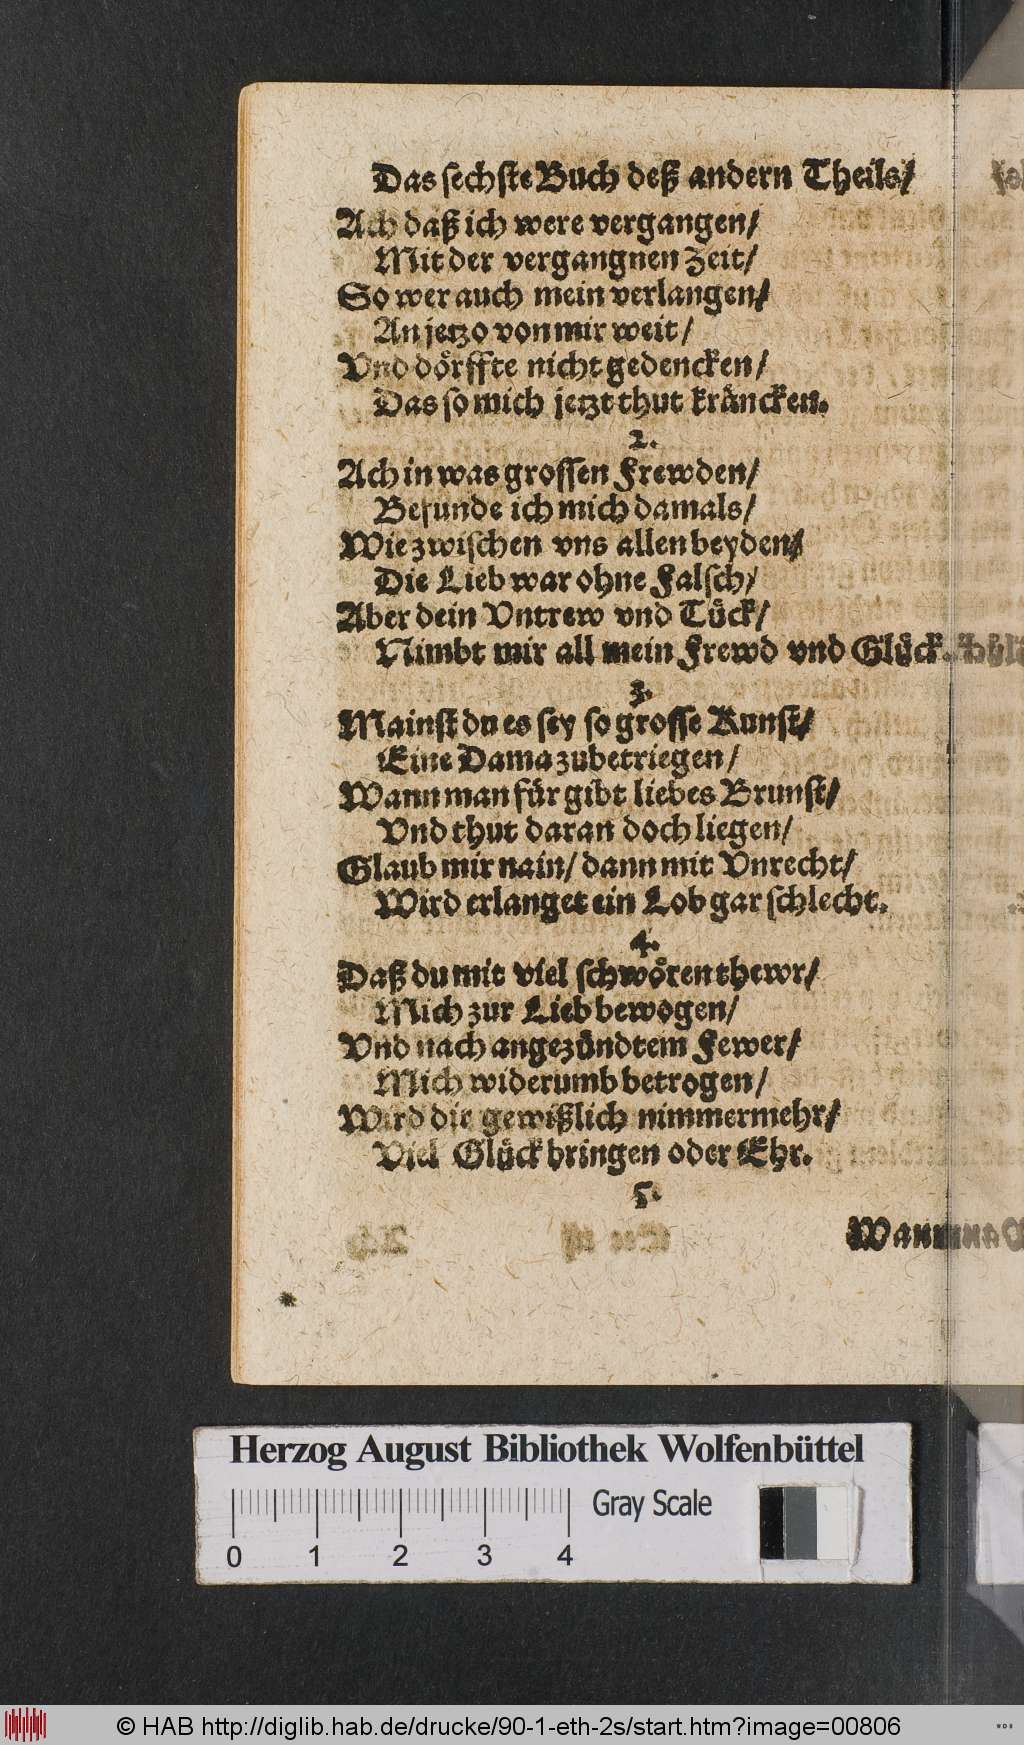 Das sechste Buch deß andern Theils/
Ach daß ich were vergangen/
Mit der vergangnen Zeit/
So wer auch mein verlangen/
An jetzo von mir weit/
Vnd dörffte nicht gedencken/
Das so mich jetzt thut kräncken.
2.
Ach in was grossen Frewden/
Befunde ich mich damals/
Wie zwischen vns allen beyden/
Die Lieb war ohne Falsch/
Aber dein Vntrew vnd Tück/
Nimbt mir all mein Frewd vnd Glück.
3.
Mainst du es sey so grosse Kunst/
Eine Dama zubetriegen/
Wann man für gibt liebes Brunst/
Vnd thut daran doch liegen/
Glaub mir nain/ dann mit Vnrecht/
Wird erlanget ein Lob gar schlecht.
4.
Daß du mit viel schwören thewr/
Mich zur Lieb bewogen/
Vnd nach angezündtem Fewer/
Mich widerumb betrogen/
Wird dir gewißlich nimmermehr/
Viel Glück bringen oder Ehr.
5.
Herzog August Bibliothek Wolfenbüttel
0 1 2 3 4 Gray Scale
© HAB http://diglib.hab.de/drucke/90-1-eth-2s/start.htm?image=00806